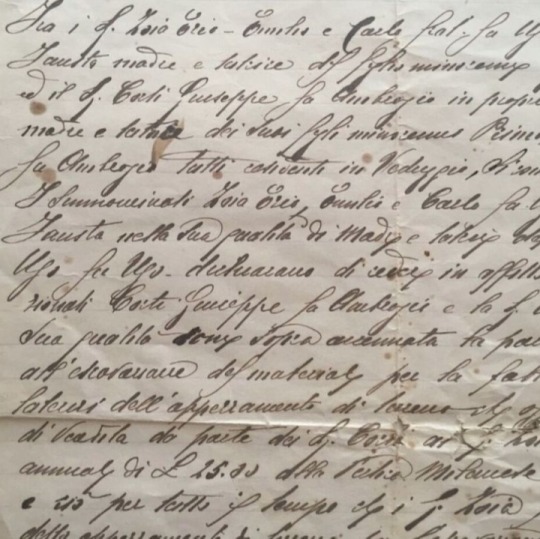 Fra i S. Zoia Ezio - Emilio e Carlo frat. fu Ug
Fausta madre e tutrice del figlio minorenne
ed il S. Corti Giuseppe fu Ambrogio in propri
madre e tutrice dei suoi figli minorenni Primo
fu Ambrogio tutti esistenti in Veduggio, si con
I summominati Zoia Ezio, Emilio e Carlo fu U
Fausta nella sua qualità di Madre e tutrice
Ugo fu Ugo - dichiarano di cedere in affitto
Corti Giuseppe fu Ambrogio e la S.
sua qualità come sopra accennata la
all'escavazione del materiale per la fab
laterizi dell'appezzamento di terreno
di da parte dei S. Corti ai S. Zoia
annuale di £ 25.00 alla Pertica Milanese
e ciò per tutto il tempo che i S. Zoia
dello appezzamento di terreno